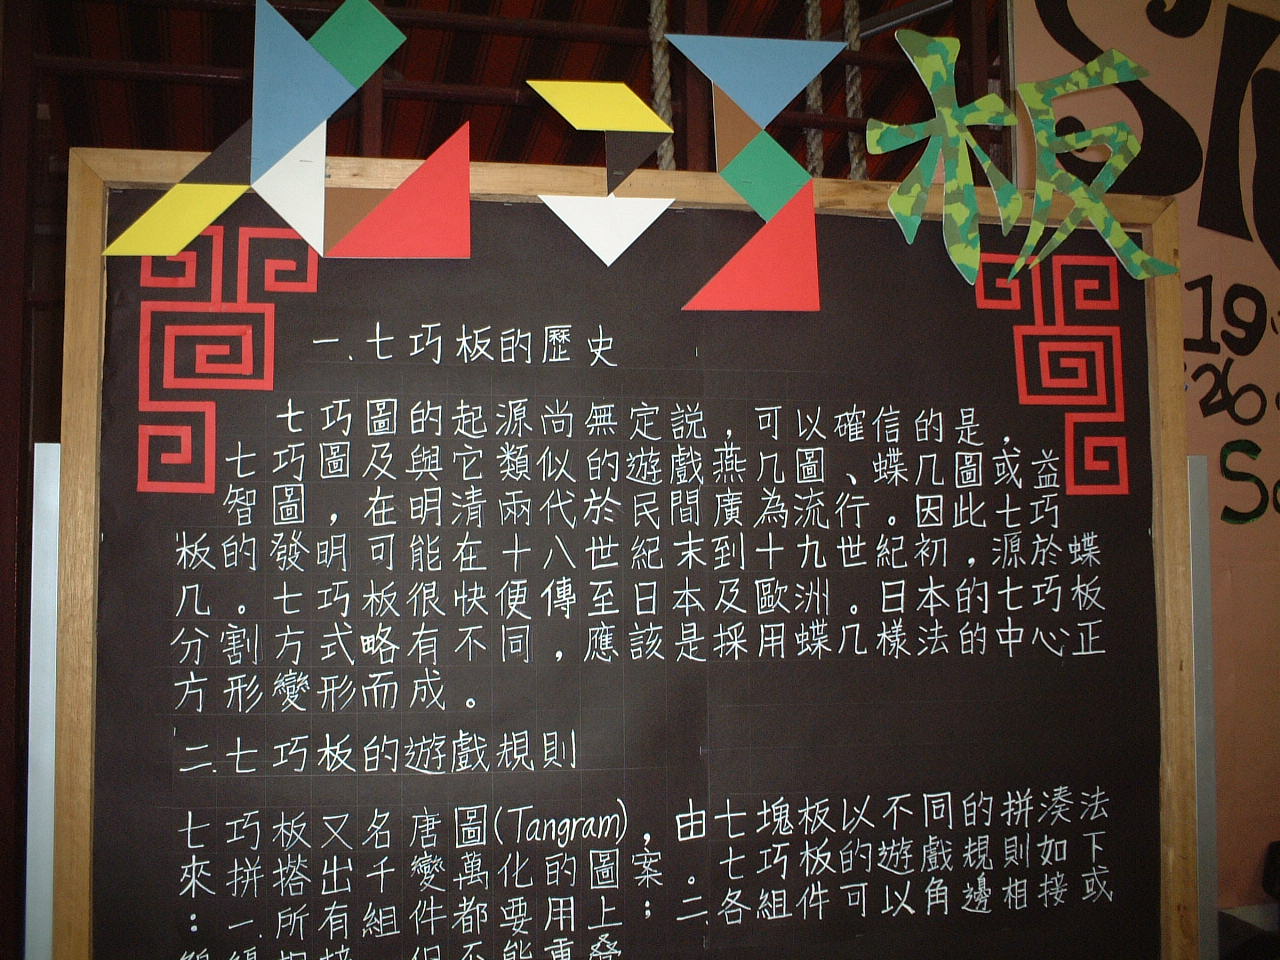 七巧板
一.七巧板的歷史
七巧圖的起源尚無定説，可以確信的是，
七巧圖及與它類似的遊戲燕几圖、蝶几圖或益
智圖，在明清兩代於民間廣為流行。因此七巧
板的發明可能在十八世紀末到十九世紀初，源於蝶
几。七巧板很快便傳至日本及歐洲。日本的七巧板
分割方式略有不同，應該是採用蝶几樣法的中心正
方形變形而成。
二.七巧板的遊戲規則
七巧板又名唐圖(Tangram)，由七塊板以不同的拼湊法
來拼搭出千變萬化的圖案。七巧板的遊戲規則如下
：一.所有組件都要用上；二.各組件可以角邊相接或
能重疊
19
26